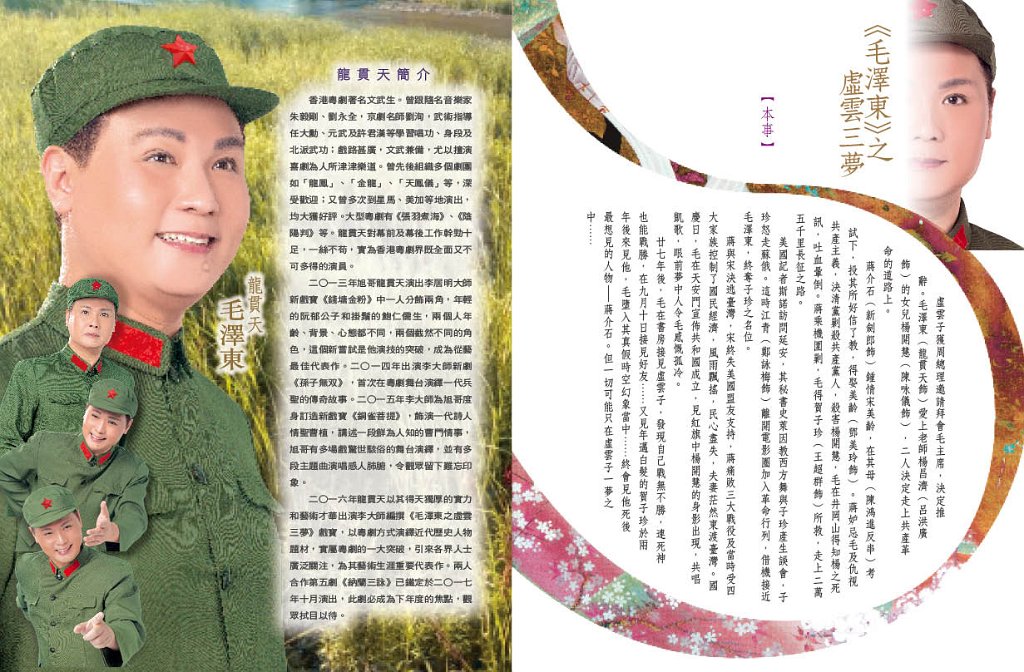 龍貫天簡介
香港粵劇著名文武生。曾跟隨名音樂家
朱毅剛、劉永全，京劇名師劉洵，武術指導
任大勳、元武及許君漢等學習唱功、身段及
北派武功；戲路甚廣，文武兼備，尤以擅演
喜劇為人所津津樂道。曾先後組織多個劇團
如「龍鳳」、「金龍」、「天鳳儀」等，深
受歡迎；又曾多次到星馬、美加等地演出，
均大獲好評。大型粵劇有《張羽煮海》、《陰
陽判》等。龍貫天對幕前及幕後工作幹勁十
足，一絲不苟，實為香港粵劇界既全面又不
可多得的演員。
二〇一三年旭哥龍貫天演出李居明大師
新戲寶《錢塘金粉》中一人分飾兩角，年輕
的阮郁公子和掛鬚的鮑仁儒生，兩個人年
齡、背景、心態都不同，兩個截然不同的角
色，這個新嘗試是他演技的突破，成為從藝
最佳代表作。二〇一四年出演李大師新劇
《孫子無双》，首次在粵劇舞台演繹一代兵
聖的傳奇故事。二〇一五年李大師為旭哥度
身訂造新戲寶《銅雀菩提》，飾演一代詩人
情聖曹植，講述一段鮮為人知的曹門情事，
旭哥有多場戲驚世駭俗的舞台演繹，並有多
段主題曲演唱感人肺腑，令觀眾留下難忘印
象。
二〇一六年龍貫天以其得天獨厚的實力
和藝術才華出演李大師編撰《毛澤東之虛雲
三夢》戲寶，以粵劇方式演繹近代歷史人物
題材，實屬粵劇的一大突破，引來各界人士
廣泛關注，為其藝術生涯重要代表作。兩人
合作第五劇《納蘭三詠》已鐵定於二〇一七
年十月演出，此劇必成為下年度的焦點，觀
眾拭目以待。
龍貫天
毛澤東
《毛澤東》之
虛雲三夢
【本事】
虛雲子獲周總理邀請拜會毛主席，決定推
辭。毛澤東（龍貫天飾）愛上老師楊昌濟（呂洪廣
飾）的女兒楊開慧（陳咏儀飾），二人決定走上共產革
命的道路上。
蔣介石（新劍郎飾）鍾情宋美齡，在其母（陳鴻進反串）考
試下，投其所好信了教，得娶美齡（鄧美玲飾）。蔣妒忌毛及仇視
共產主義，決清黨剿殺共產黨人，殺害楊開慧，毛在井岡山得知楊之死
訊，吐血暈倒。蔣乘機圍剿，毛得賀子珍（王超群飾）所救，走上二萬
五千里長征之路。
美國記者斯諾訪問延安，其秘書史萊因教西方舞與子珍產生誤會，子
珍怒走蘇俄。這時江青（鄭詠梅飾）離開電影圈加入革命行列，借機接近
毛澤東，終奪子珍之名位。
蔣與宋決逃臺灣，宋終失美國盟友支持，蔣痛敗三大戰役及當時受四
大家族控制了國民經濟，風雨飄搖，民心盡失，夫妻茫然東渡臺灣。國
慶日，毛在天安門宣佈共和國成立，見紅旗中楊開慧的身影出現，共唱
凱歌，眼前夢中人令毛感慨孤冷。
廿七年後，毛在書房接見虛雲子，發現自己戰無不勝，連死神
也能戰勝，在九月十日接見好友……又見年邁白髮的賀子珍於兩
年後來見他，毛墮入其真假時空幻象當中……終會見他死後
最想見的人物——蔣介石。但一切可能只在虛雲子一夢之
中……